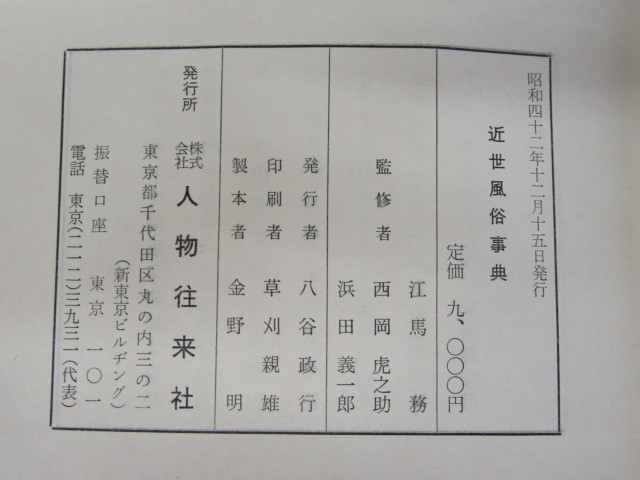 昭和四十二年十二月十五日発行
近世風俗事典
定価 九、〇〇〇円
江馬務
監修者 西岡虎之助
浜田義一郎
発行者 八谷政行
印刷者 草刈親雄
製本者 金野明
発行所 株式会社 人物往来社
東京都千代田区丸の内三の二
(新東京ビルヂング)
振替口座 東京 一〇一
電話 東京(二一二)三九三一(代表)